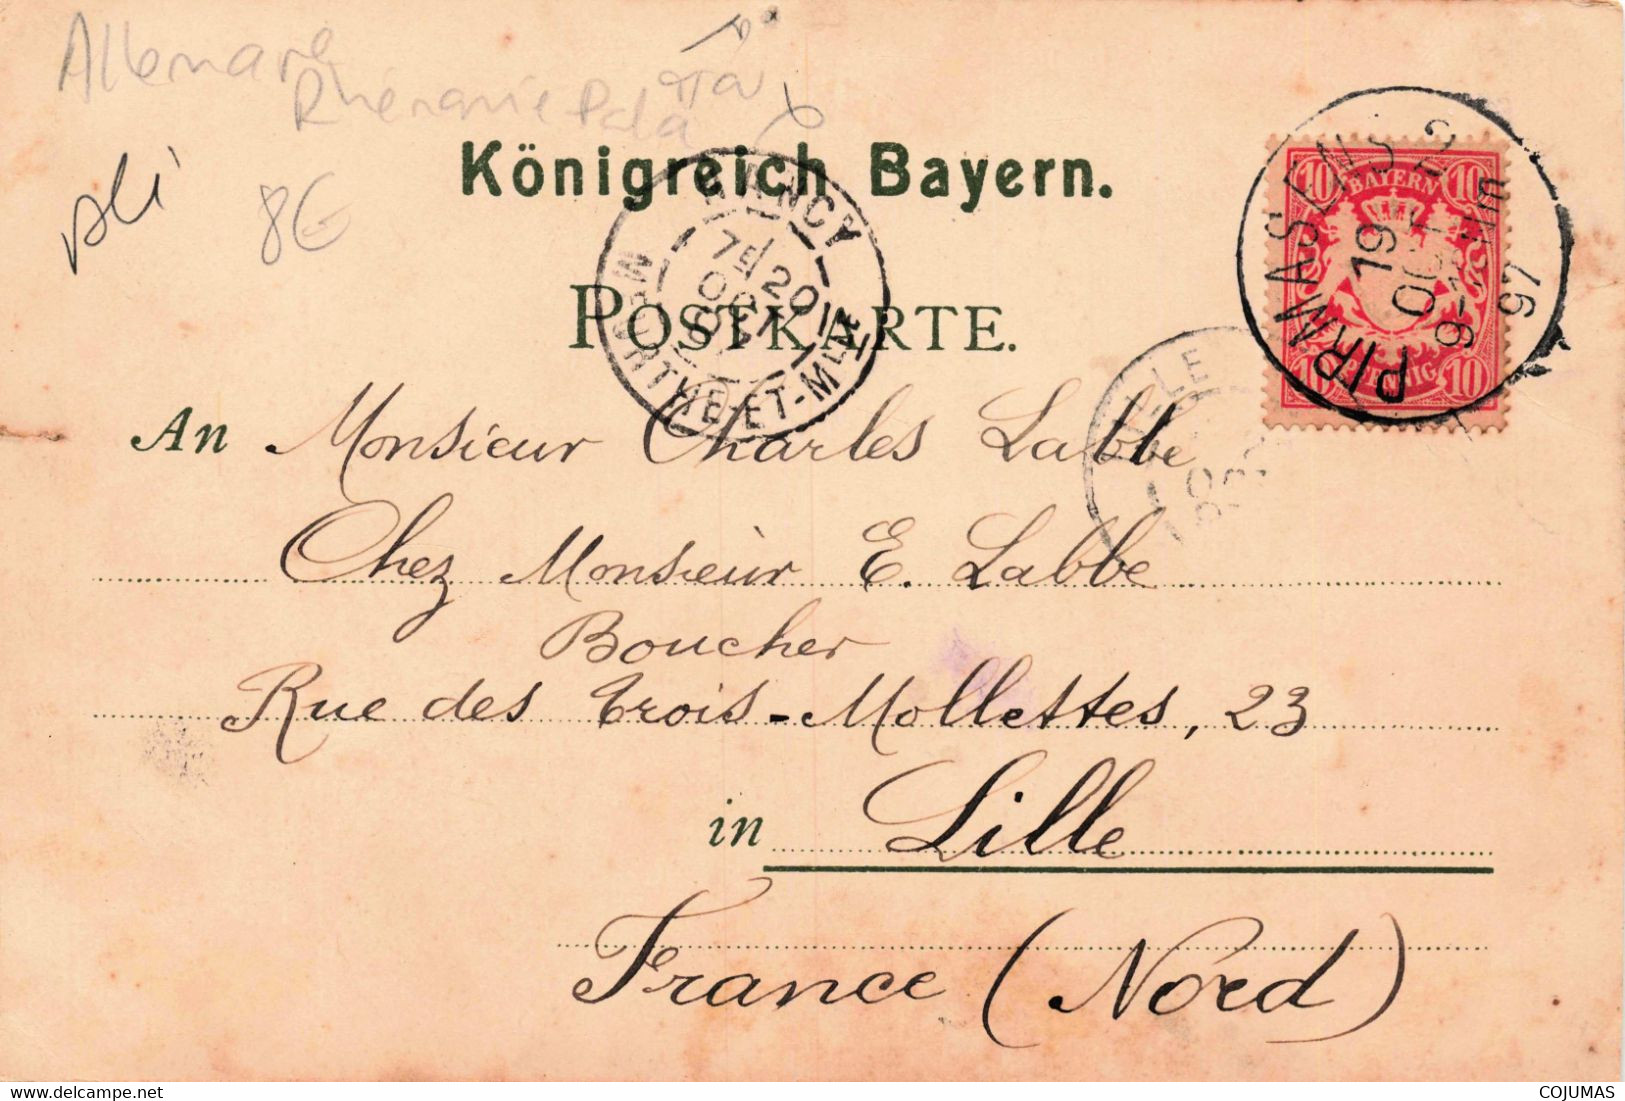 Allemagne
Rhénanie Pala
8€
Königreich Bayern.
POSTKARTE.
NANCY
7E/20
OCT
97
MEURTHE-ET-MLLE
PIRMASENS 2
19
OCT
9-10Vm
97
10 BAYERN 10
10 PFENNIG 10
LILLE
An Monsieur Charles Labbe
Chez Monsieur E. Labbe
Boucher
Rue des trois-Mollettes, 23
in Lille
France (Nord)
COJUMAS